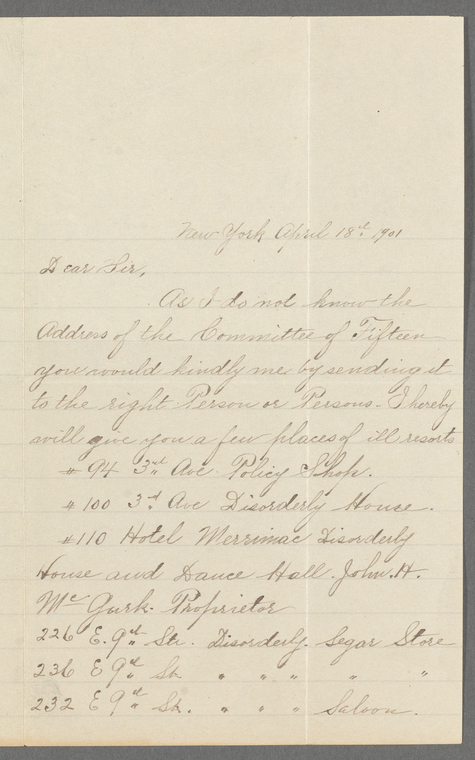 New York April 18th 1901
Dear Sir,
As I do not know the
Address of the Committee of Fifteen
you would kindly me by sending it
to the right Person or Persons. I hereby
will give you a few places of ill resorts
# 94 3rd Ave. Policy Shop.
# 100 3rd Ave Disorderly House.
#110 Hotel Merrimac Disorderly
House and Dance Hall. John. H.
Mc Gurk. Proprietor
226 E. 9th Str. Disorderly. Segar Store
236 E 9th St. " " " " "
232 E 9th St. " " " Saloon.